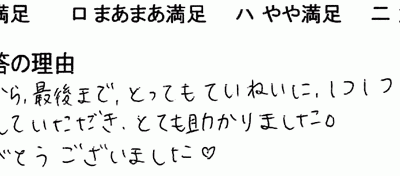 満足　　ロ まあまあ満足　　ハ やや満足　　ニ
答の理由
から,最後まで,とってもていねいに,1つ1つ
していただき.とても助かりました。
がとうございました♡